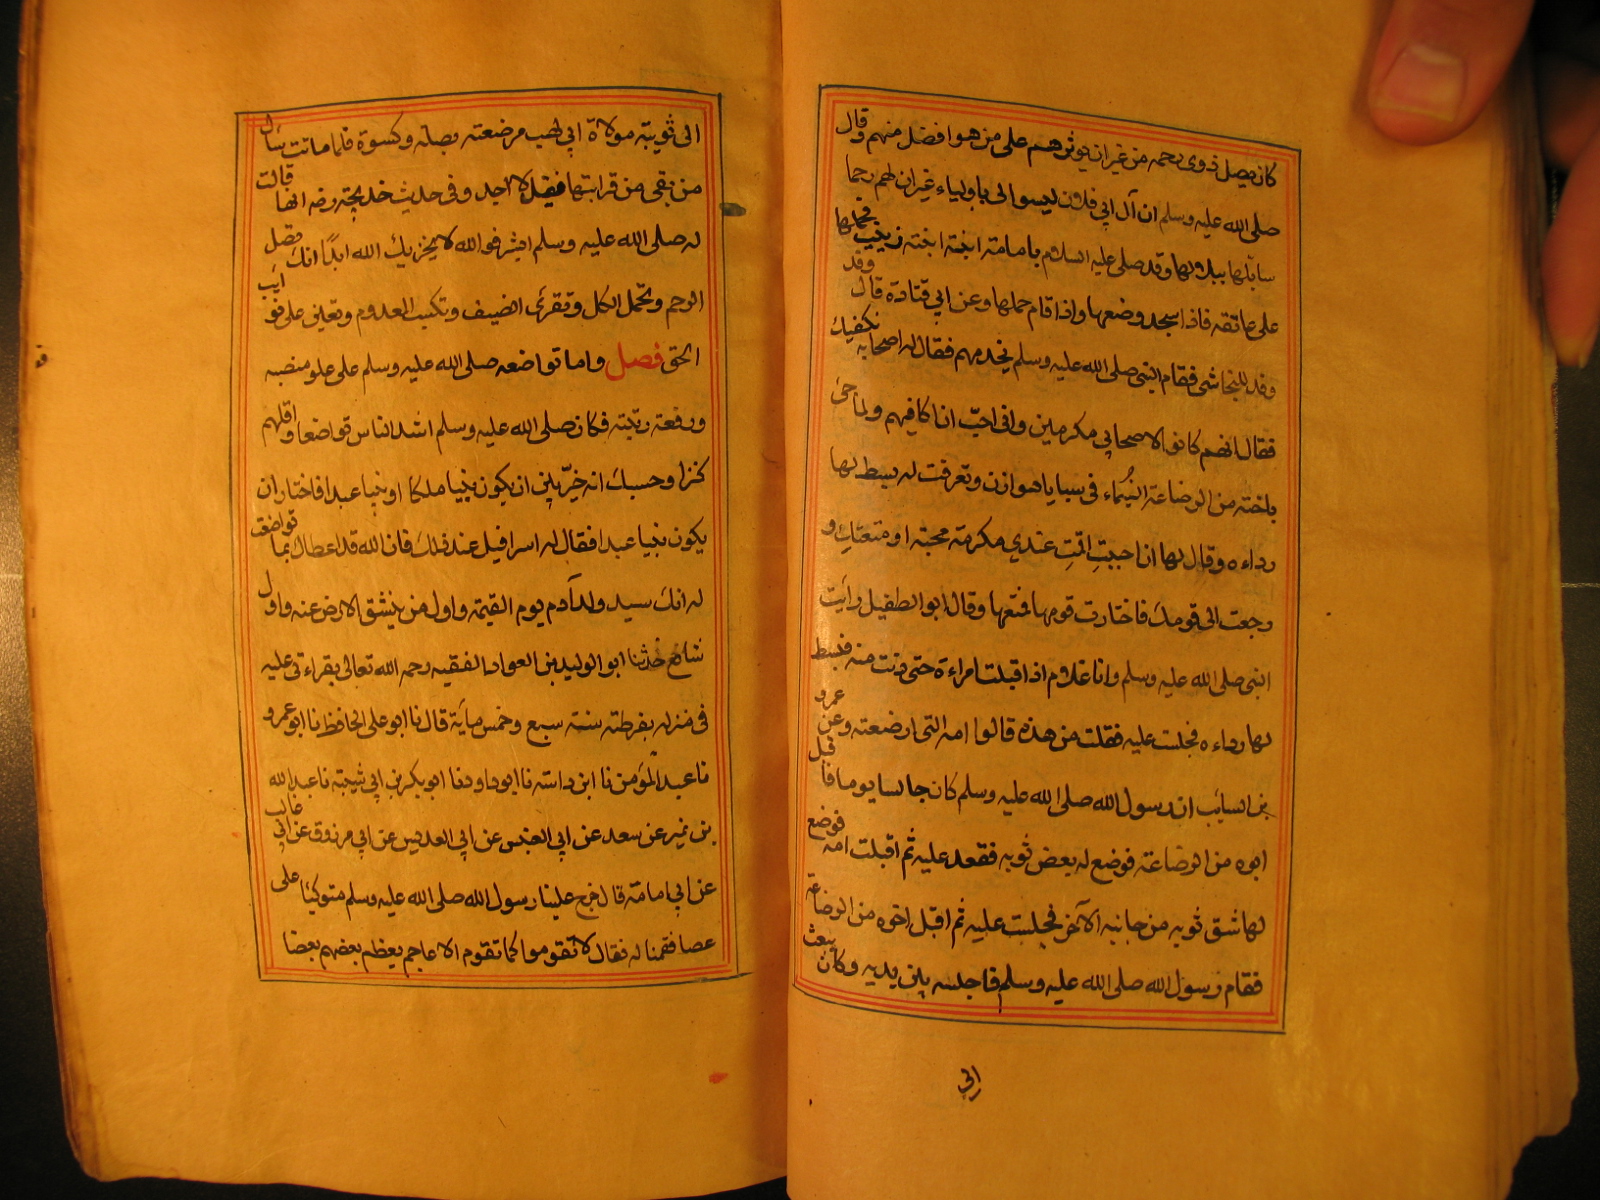 كان يصل ذوى رحمه من غير ان يوثرهم على من هو افضل منهم وقال
صلى الله عليه وسلم ان آل ابي فلان ليسوا لى باولياء غير ان لهم رحما
سابلها ببلالها وقد صلى عليه السلام بامامة ابنة ابنته زينب يحملها
على عاتقه فاذا سجد وضعها واذا قام حملها وعن ابى قتادة قال وفد
وفد للنجاشى فقام النبى صلى الله عليه وسلم يخدمهم فقال له اصحابه نكفيك
فقال انهم كانوا لاصحابى مكرمين وانى احبّ ان اكافيهم ولما جئ
باخته من الرضاعة الشيماء فى سبايا هوازن وتعرفت له بسط لها
رداءه وقال لها ان احببتِ اقمتِ عندى مكرمة محبة او متعتك و
رجعت الى قومك فاختارت قومها فمتعها وقال ابو الطفيل رأيت
النبى صلى الله عليه وسلم وانا غلام اذ اقبلت امراءة حتى دنت منه فبسط
لها رداءه فجلست عليه فقلت من هذه قالوا امه التى ارضعته وعن عمرو
بن السايب ان رسول الله صلى الله عليه وسلم كان جالسا يوما فاقبل
ابوه من الرضاعة فوضع له بعض ثوبه فقعد عليه ثم اقبلت امه فوضع
لها شق ثوبه من جانبه الآخر فجلست عليه ثم اقبل اخوه من الرضاعة
فقام رسول الله صلى الله عليه وسلم فاجلسه بين يديه وكان يبعث
الى
الى ثويبة مولاة ابى لهب مرضعته بصلة وكسوة فلما ماتت سأل
من بقى من قرابتها فقيل لا احد وفى حديث خديجة رضه انها قالت
له صلى الله عليه وسلم ابشر فوالله لا يخزيك الله ابدًا انك تصل
الرحم وتحمل الكل وتقرئ الضيف وتكسب المعدوم وتعين على نوايب
الحق فصل واما تواضعه صلى الله عليه وسلم على علو منصبه
ورفعة رتبته فكان صلى الله عليه وسلم اشد الناس تواضعا واقلهم
كبرا وحسبك انه خيّر بين ان يكون نبيا ملكا او نبيا عبدا فاختار ان
يكون نبيا عبدا فقال له اسرافيل عند ذلك فان الله قد اعطاك بما تواضعت
له انك سيد ولد آدم يوم القيمة واول من ينشق الارض عنه واول
شافع حدثنا ابو الوليد بن العواد الفقيه رحمه الله تعالى بقراءتى عليه
فى منزله بقرطبة سنة سبع وخمس ماية قال نا ابو على الحافظ نا ابو عمرو
نا عبد المؤمن نا ابن داسة نا ابو داود نا ابو بكر بن ابى شيبة نا عبد الله
بن نمير عن سعد عن ابى العنبس عن ابى العدبس عن ابى مرزوق عن ابى غالب
عن ابى امامة قال خرج علينا رسول الله صلى الله عليه وسلم متوكئا على
عصا فقمنا له فقال لا تقوموا كما تقوم الاعاجم يعظم بعضهم بعضا